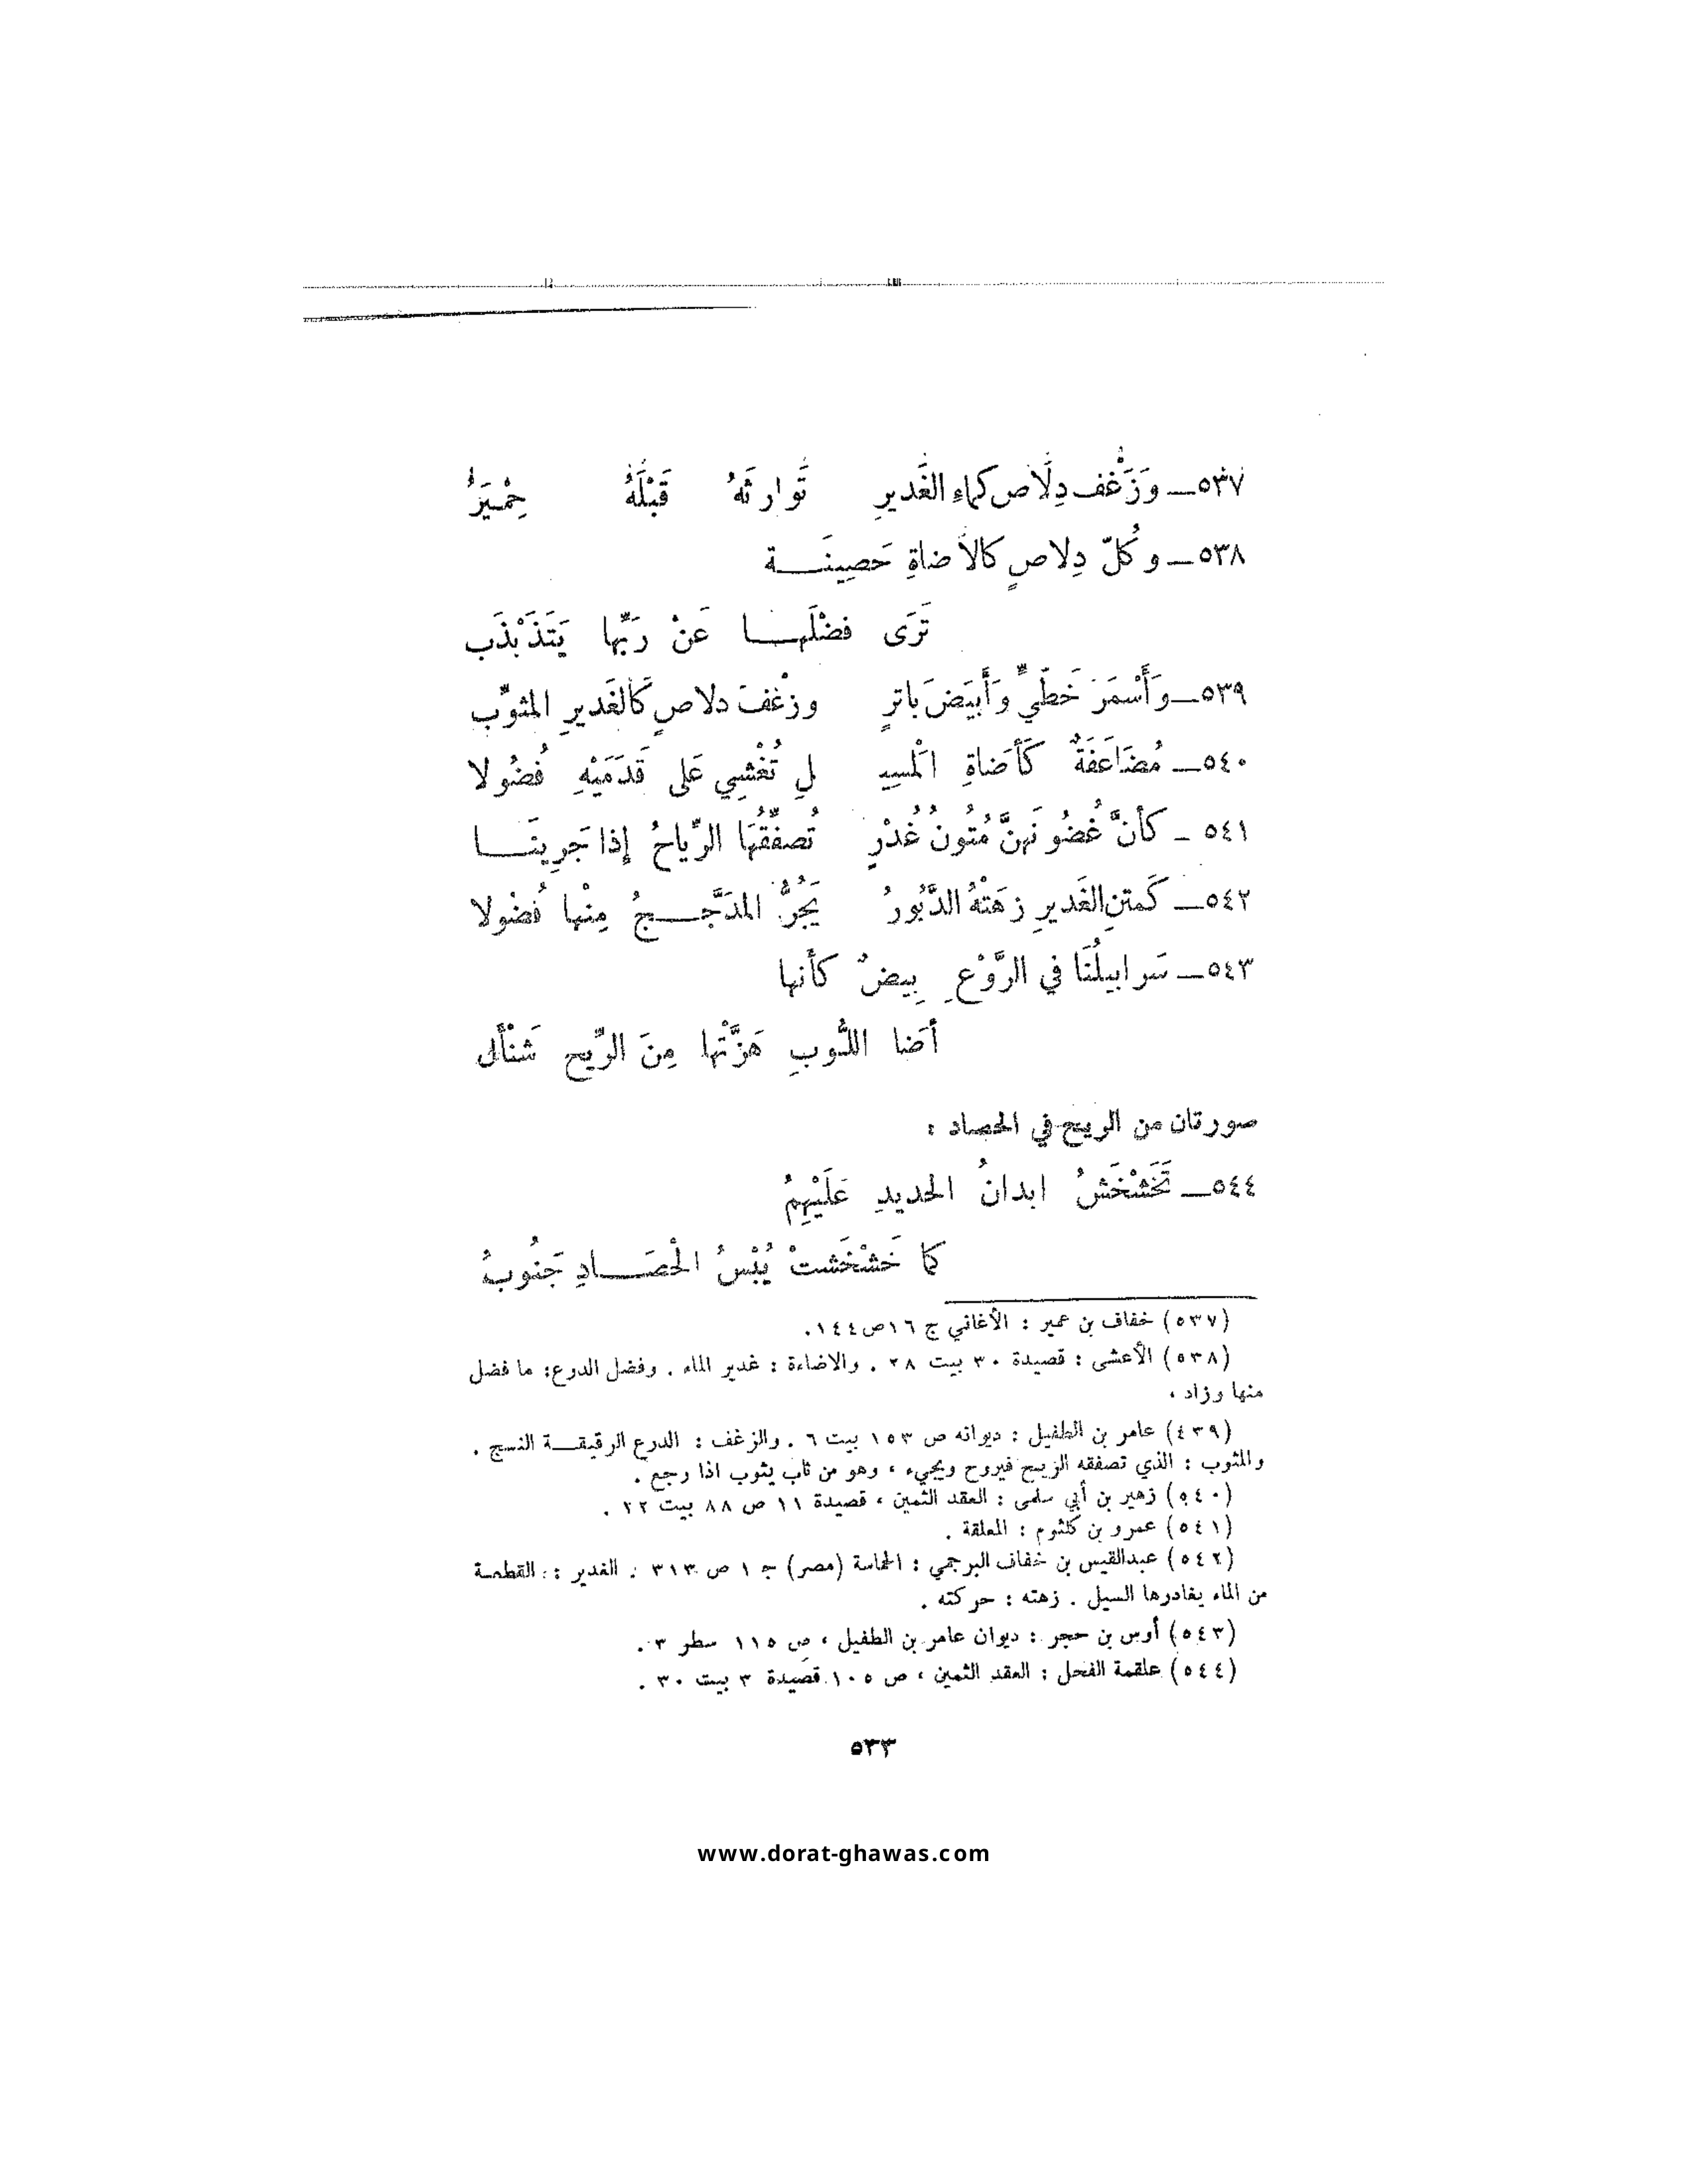 ٥٣٧ــ وَزَغْف دِلَاص كماءِ الغَديرِ تَوارثَهُ قَبْلَهُ حِمْيَرُ
٥٣٨ــ وكُلّ دِلاصٍ كالأضاةِ حَصِينَــــة
تَرَى فضْلَهــــا عَنْ رَبِّها يَتَذَبْذَب
٥٣٩ــ وَأَسْمَرَ خَطّيٍّ وَأَبيَضَ باترٍ وزغْفَ دلاصٍ كَالغَديرِ المثوّب
٥٤٠ــ مُضَاعَفَةٌ كَأَضَاةِ الَمْسِيـ لِ تُغْشِي عَلى قَدَمَيْهِ فُضُولا
٥٤١ ــ كأنَّ غُضُونَهنَّ مُتُونُ غُدْرٍ تُصفِّقُهَا الرِّياحُ إذا جَرِينَــــا
٥٤٢ــ كَمتنِ الغَديرِ زهَتْهُ الدَّبُورُ يَجُرُّ المدَجَّــــجُ مِنْها فُضُولا
٥٤٣ــ سَرابيلُنَا في الرَّوْعِ بِيضٌ كأَنها
أَضا اللُّوبِ هَزَّتْها مِنَ الرِّيح شَمْأَل
صورتان من الريح في الحصاد :
٥٤٤ــ تَخَشْخَشُ ابدانُ الحديدِ عَلَيْهِمُ
كما خَشْخَشتْ يُبْسُ الْحصَــــادِ جَنُوبُ
(٥٣٧) خفاف بن عمير : الأغاني ج ١٦ ص ١٤٤.
(٥٣٨) الأعشى : قصيدة ٣٠ بيت ٢٨ . والاضاءة : غدير الماء . وفضل الدرع: ما فضل
منها وزاد .
(٤٣٩) عامر بن الطفيل : ديوانه ص ١٥٣ بيت ٦ . والزغف : الدرع الرقيقــة النسج .
والمثوب : الذي تصفقه الريح فيروح ويجيء ، وهو من ثاب يثوب اذا رجع .
(٥٤٠) زهير بن أبي سلمى : العقد الثمين ، قصيدة ١١ ص ٨٨ بيت ٢٢ .
(٥٤١) عمرو بن كلثوم : المعلقة .
(٥٤٢) عبدالقيس بن خفاف البرجمي : الحماسة (مصر) ج ١ ص ٣١٣ . الغدير : القطعة
من الماء يغادرها السيل . زهته : حركته .
(٥٤٣) أوس بن حجر : ديوان عامر بن الطفيل ، ص ١١٥ سطر ٣ .
(٥٤٤) علقمة الفحل : العقد الثمين ، ص ١٠٥ قصيدة ٣ بيت ٣٠ .
٥٣٣
www.dorat-ghawas.com